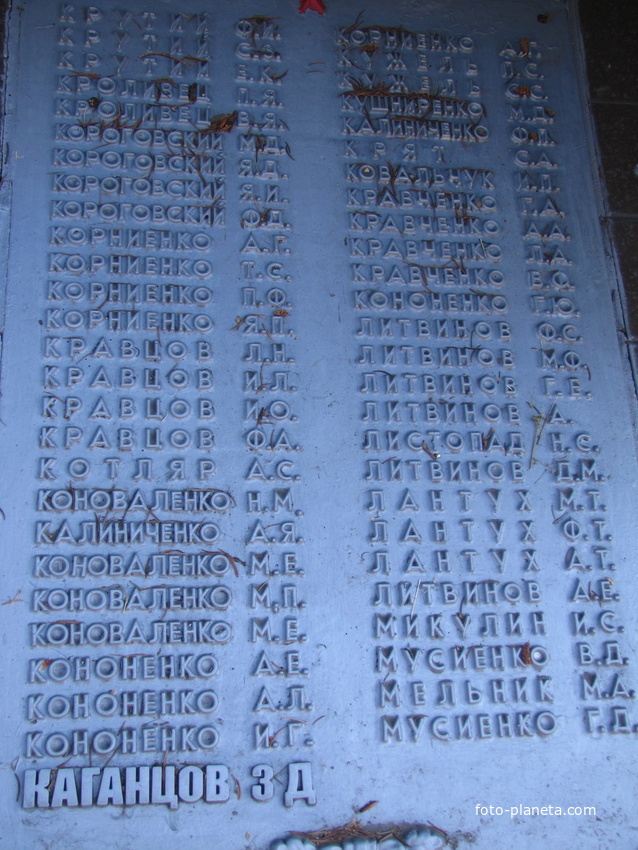 КРУТИЙ Ф.И.
КРУТИЙ С.З.
КРУТИЙ Е.К.
КРОЛИВЕЦ І.Я.
КРОЛИВЕЦ В.Я.
КОРОГОВСКИЙ М.Д.
КОРОГОВСКИЙ Я.Д.
КОРОГОВСКИЙ Я.И.
КОРОГОВСКИЙ Ф.Д.
КОРНИЕНКО А.Г.
КОРНИЕНКО Т.С.
КОРНИЕНКО П.Ф.
КОРНИЕНКО Я.П.
КРАВЦОВ Л.Н.
КРАВЦОВ И.Л.
КРАВЦОВ И.О.
КРАВЦОВ Ф.А.
КОТЛЯР А.С.
КОНОВАЛЕНКО Н.М.
КАЛИНИЧЕНКО А.Я.
КОНОВАЛЕНКО М.Е.
КОНОВАЛЕНКО М.П.
КОНОВАЛЕНКО М.Е.
КОНОНЕНКО А.Е.
КОНОНЕНКО А.Л.
КОНОНЕНКО И.Г.
КАГАНЦОВ З Д
КОРНИЕНКО А.Г.
КУЖЕЛЬ І.С.
КУЖЕЛЬ С.С.
КУШНИРЕНКО М.Д.
КАЛИНИЧЕНКО Ф.Д.
КРЯТ С.А.
КОВАЛЬЧУК И.П.
КРАВЧЕНКО Г.А.
КРАВЧЕНКО А.А.
КРАВЧЕНКО П.А.
КРАВЧЕНКО В.О.
КОНОНЕНКО Г.Ю.
ЛИТВИНОВ Ф.С.
ЛИТВИНОВ М.Ф.
ЛИТВИНОВ Г.Е.
ЛИТВИНОВ А.
ЛИСТОПАД Н.С.
ЛИТВИНОВ Д.М.
ЛАНТУХ М.Т.
ЛАНТУХ Ф.Т.
ЛАНТУХ А.Т.
ЛИТВИНОВ А.Е.
МИКУЛИН И.С.
МУСИЕНКО В.Д.
МЕЛЬНИК М.А.
МУСИЕНКО Г.Д.
foto-planeta.com